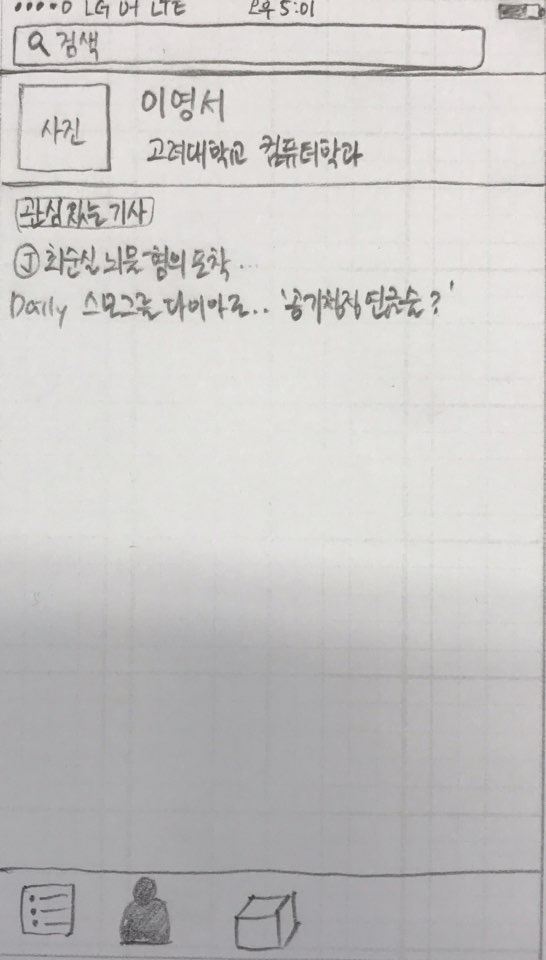 LG U+ LTE 오후 5:01
검색
사진
이영서
고려대학교 컴퓨터학과
관심있는 기사
J 최순실 뇌물 혐의 포착...
Daily 스모그를 다이아로.. '공기청정 연금술?'